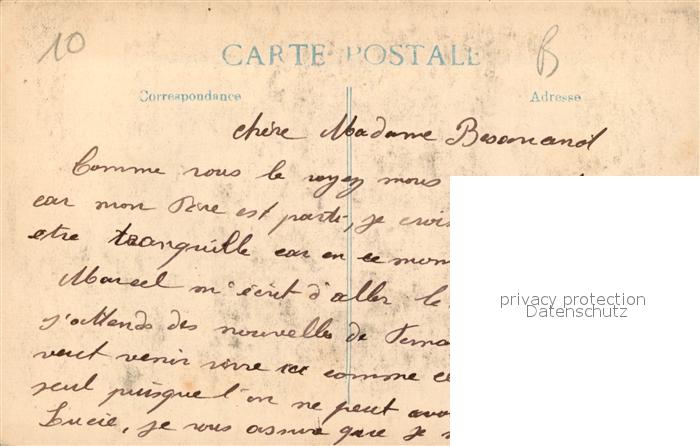 10
B
CARTE POSTALE
Correspondance
Adresse
chère Madame
Comme vous le voyez nous
car mon Père est parti, je crois
etre tranquille car en ce mom
Marcel m'écrit d'aller le
j'attends des nouvelles de
veut venir vivre ici comme ce
seul puisque l'on ne peut avo
Lucie, je vous assure que je
privacy protection
Datenschutz